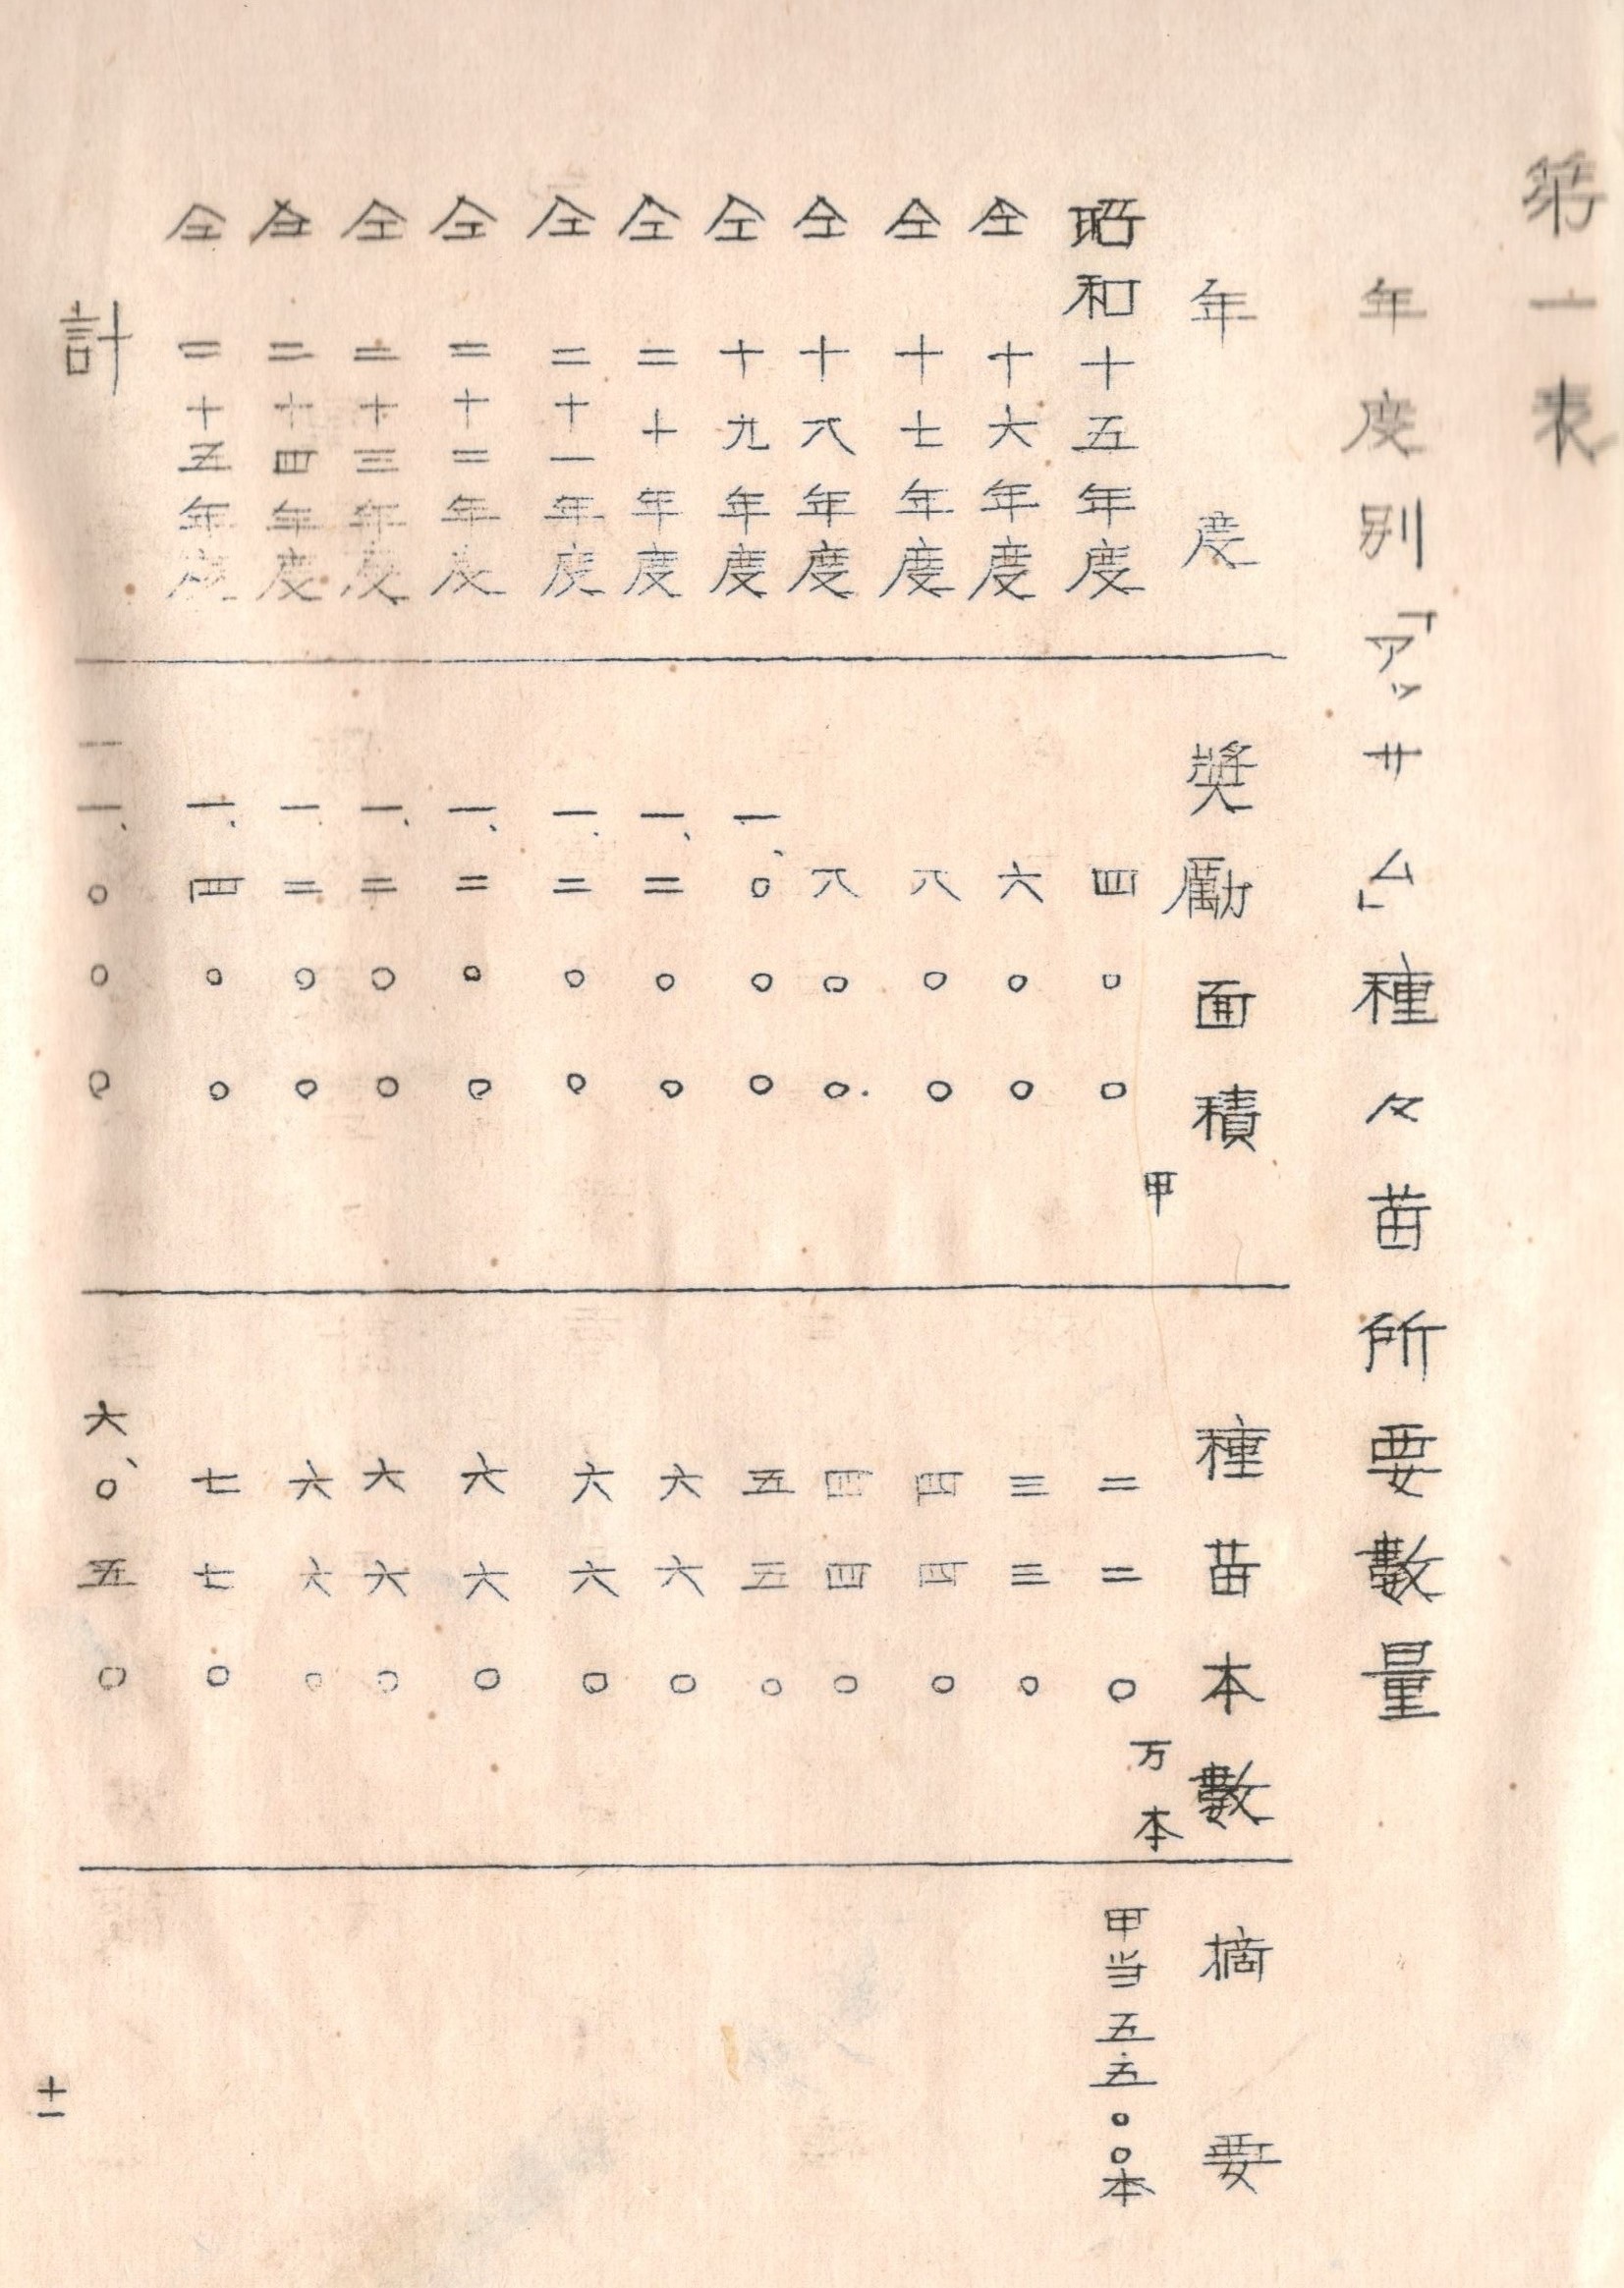 第一表
年度別「アッサム」種々苗所要數量
年度 奬勵面積 種苗本數 摘要
甲 万本
昭和十五年度 四〇〇 二二〇 甲当五五〇〇本
仝十六年度 六〇〇 三三〇
仝十七年度 八〇〇 四四〇
仝十八年度 八〇〇 四四〇
仝十九年度 一、〇〇〇 五五〇
仝二十年度 一、二〇〇 六六〇
仝二十一年度 一、二〇〇 六六〇
仝二十二年度 一、二〇〇 六六〇
仝二十三年度 一、二〇〇 六六〇
仝二十四年度 一、二〇〇 六六〇
仝二十五年度 一、四〇〇 七七〇
計 一一、〇〇〇 六、〇五〇
十一